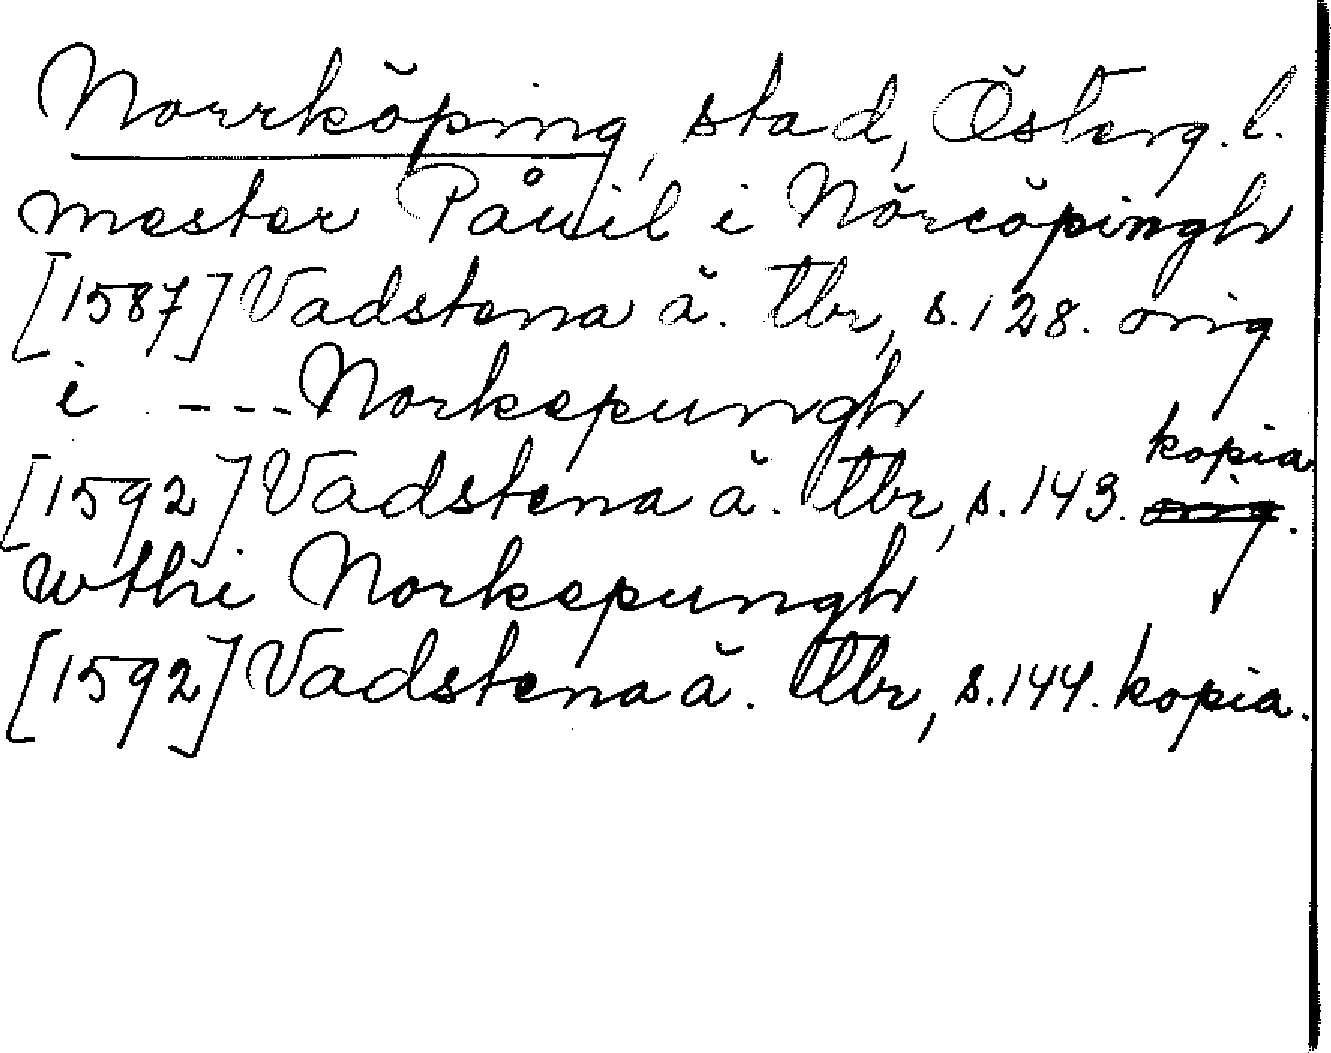 Norrköping, stad, Österg. l.
mester Påuil i Nörcöpingh
[1587] Vadstena ä. tbr, s. 128. orig
i --- Norkepungh
[1592] Vadstena ä. tbr, s. 143. kopia orig.
wthi Norkepungh
[1592] Vadstena ä. tbr, s. 144. kopia.